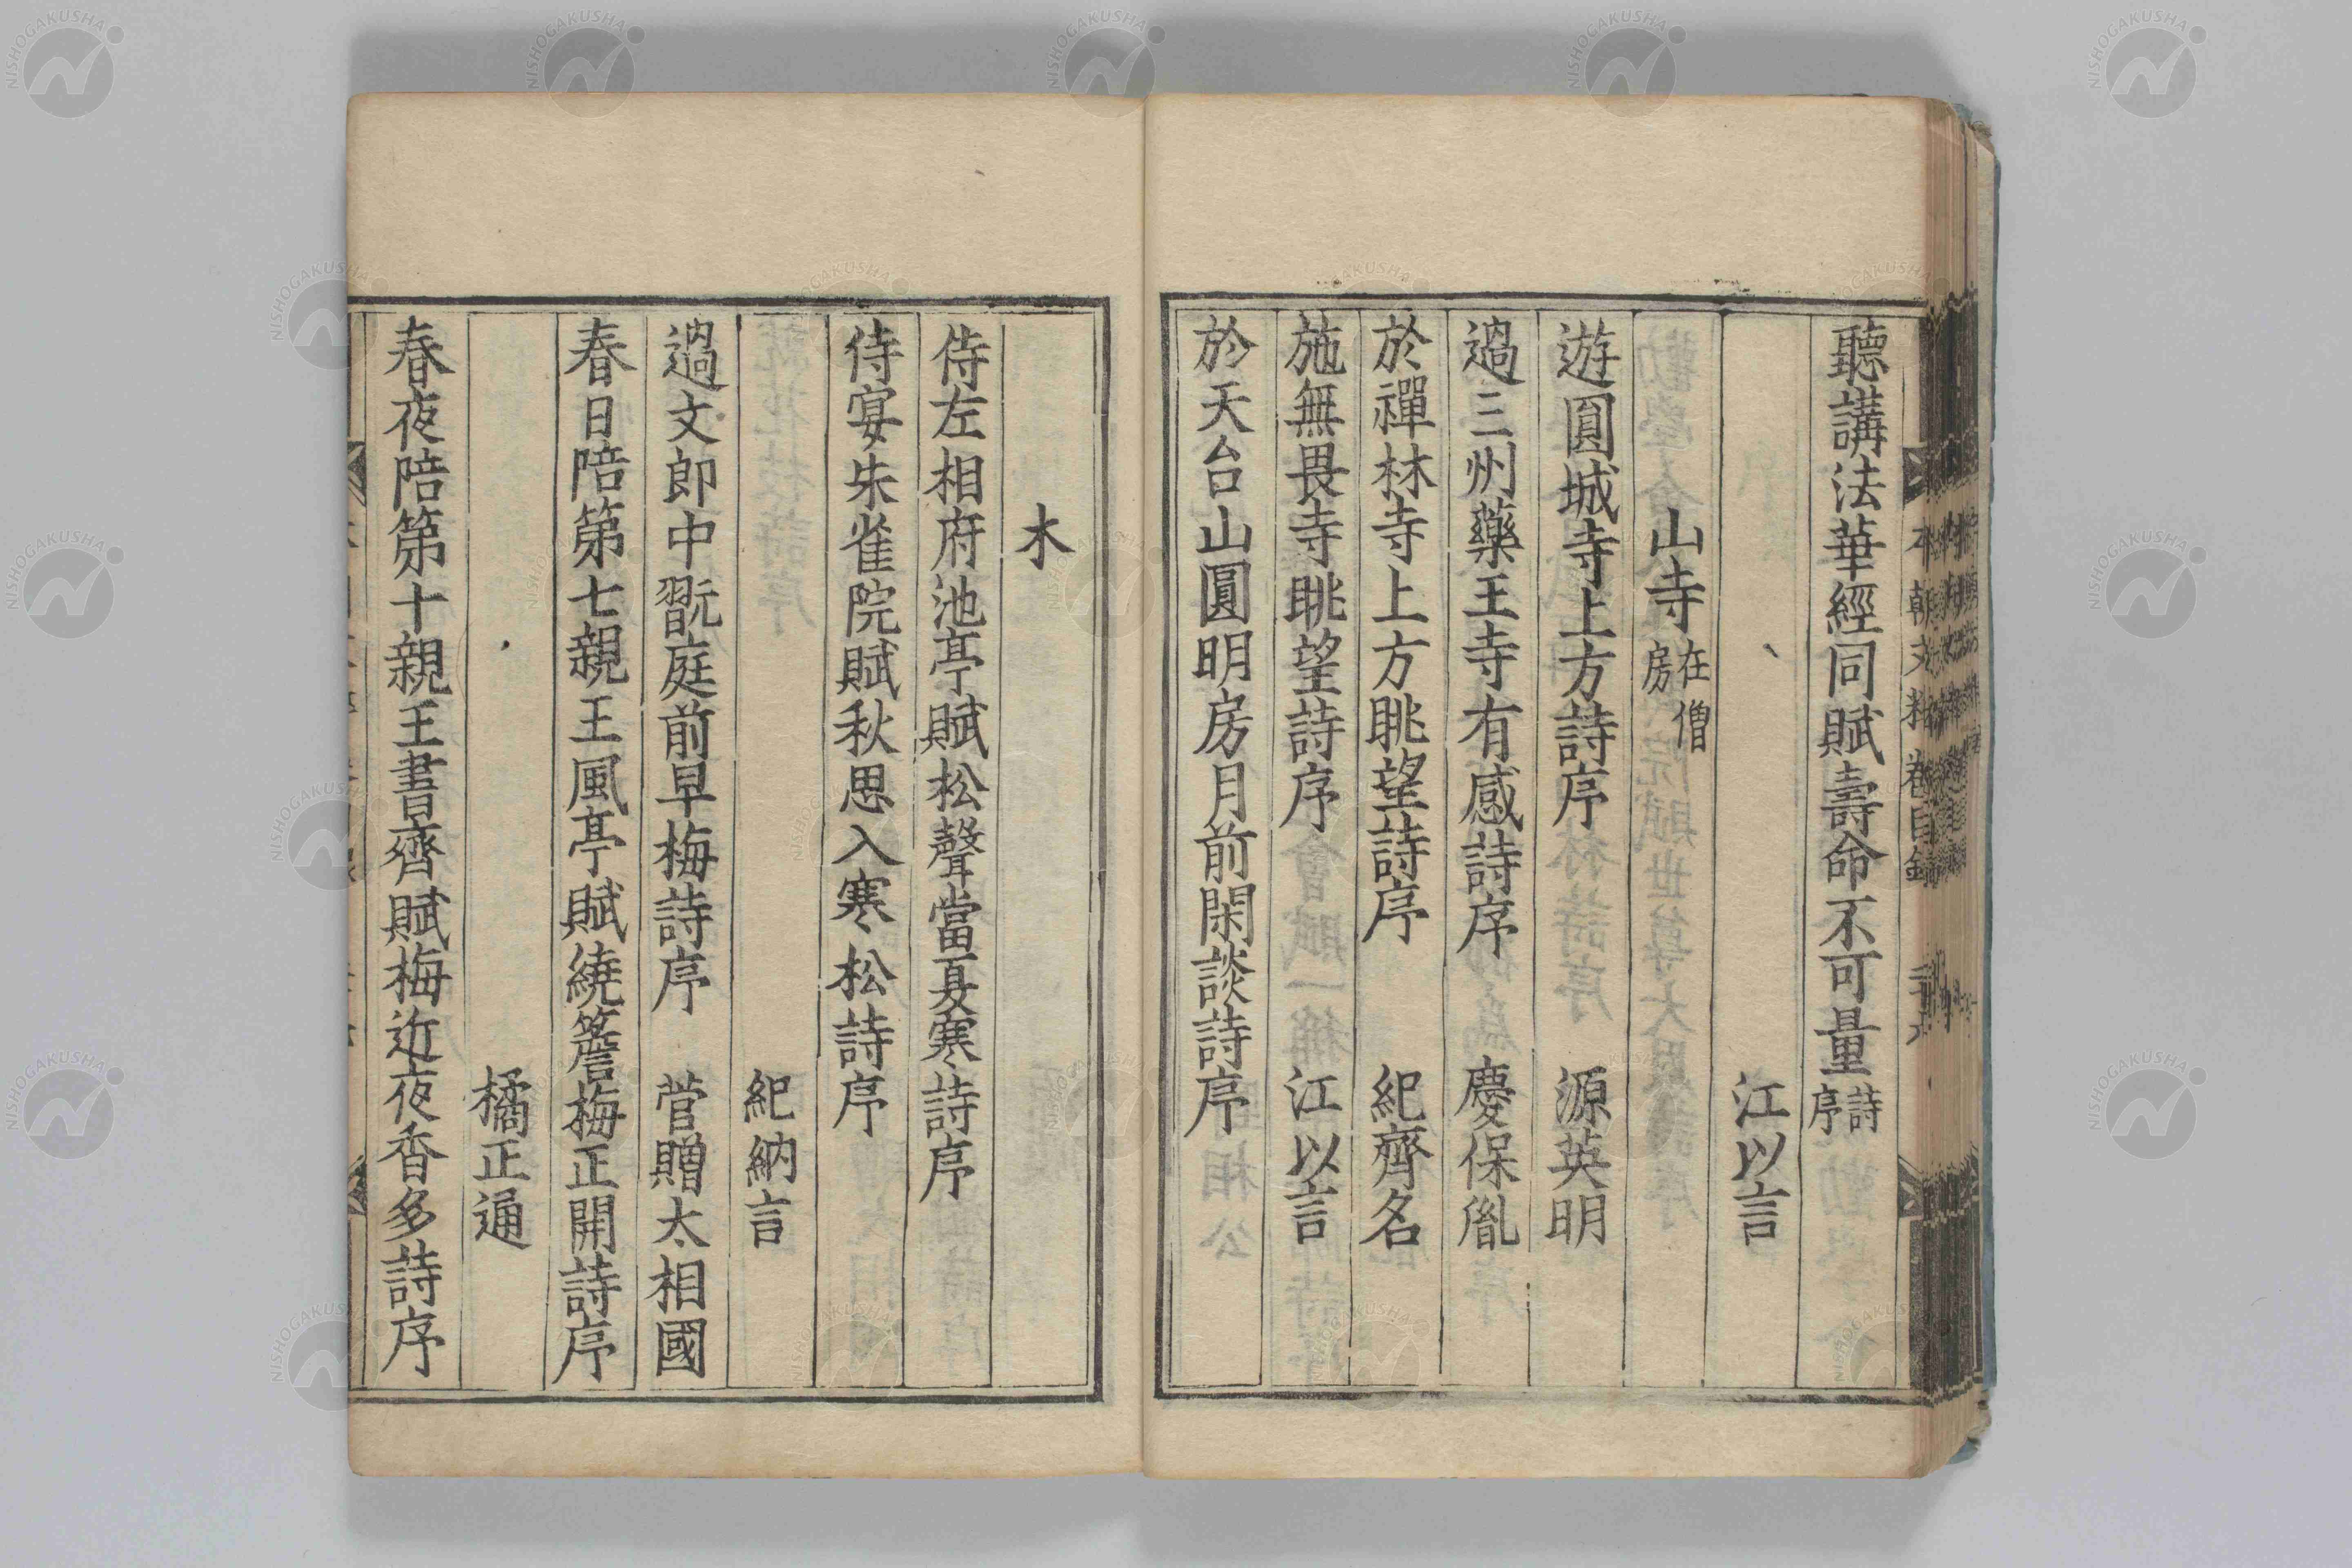 聽講法華經同賦壽命不可量詩序
江以言
山寺在僧房
遊圓城寺上方詩序 源英明
過三州藥王寺有感詩序 慶保胤
於禪林寺上方眺望詩序 紀齊名
施無畏寺眺望詩序 江以言
於天台山圓明房月前閑談詩序
木
侍左相府池亭賦松聲當夏寒詩序
侍宴朱雀院賦秋思入寒松詩序
紀納言
過文郎中翫庭前早梅詩序 菅贈太相國
春日陪第七親王風亭賦繞簷梅正開詩序
橘正通
春夜陪第十親王書齊賦梅近夜香多詩序
本朝文粹卷目錄
NISHOGAKUSHA